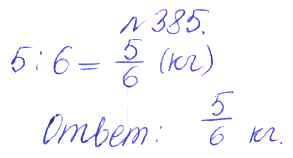 №385.
5:6 = 5/6 (кг)
Ответ: 5/6 кг.